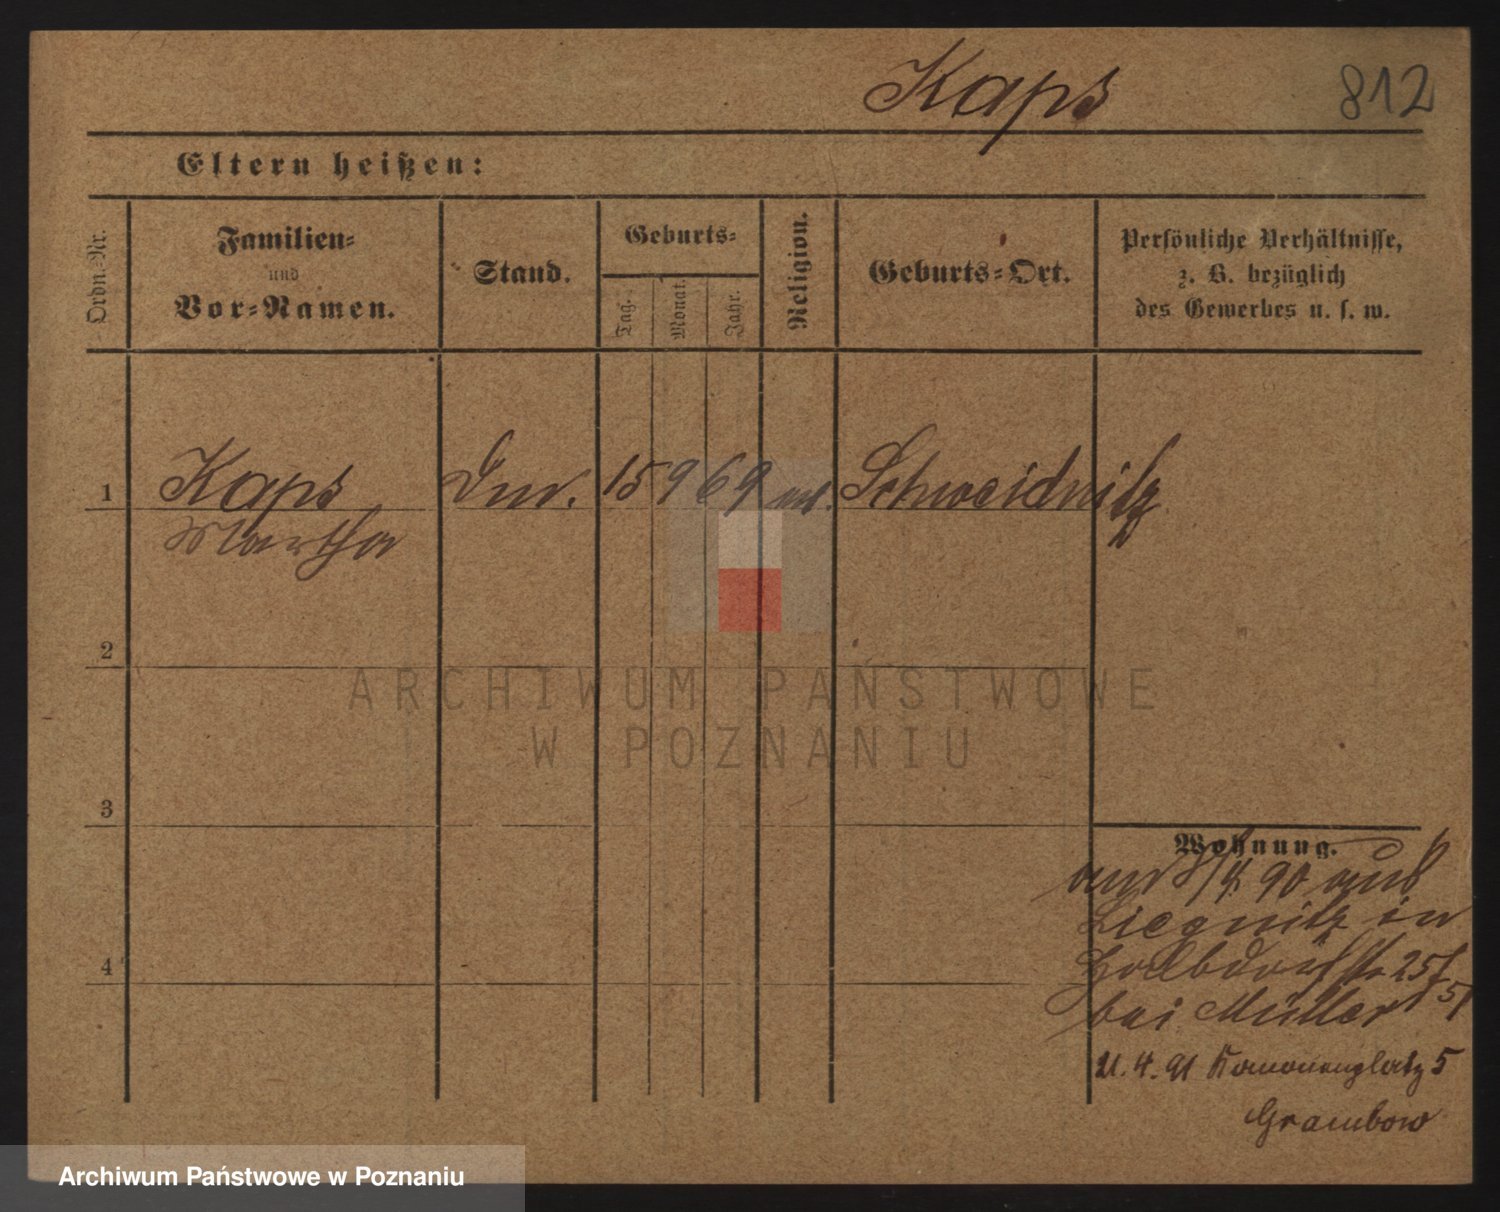 Kaps 812
Eltern heißen:
Ordn.-Nr.
Familien-
und
Vor-Namen.
Stand.
Geburts-
Tag.
Monat.
Jahr.
Religion.
Geburts-Ort.
Persönliche Verhältnisse,
z. B. bezüglich
des Gewerbes u. s. w.
1 Kaps 15 9 69 Schweidnitz
Martha
2
ARCHIWUM PAŃSTWOWE
W POZNANIU
3
Wohnung.
90 aus
Liegnitz in
Halbdorfstr 25
bei Müller
11.4.91 Kanonenplatz 5
Grambow
4
Archiwum Państwowe w Poznaniu